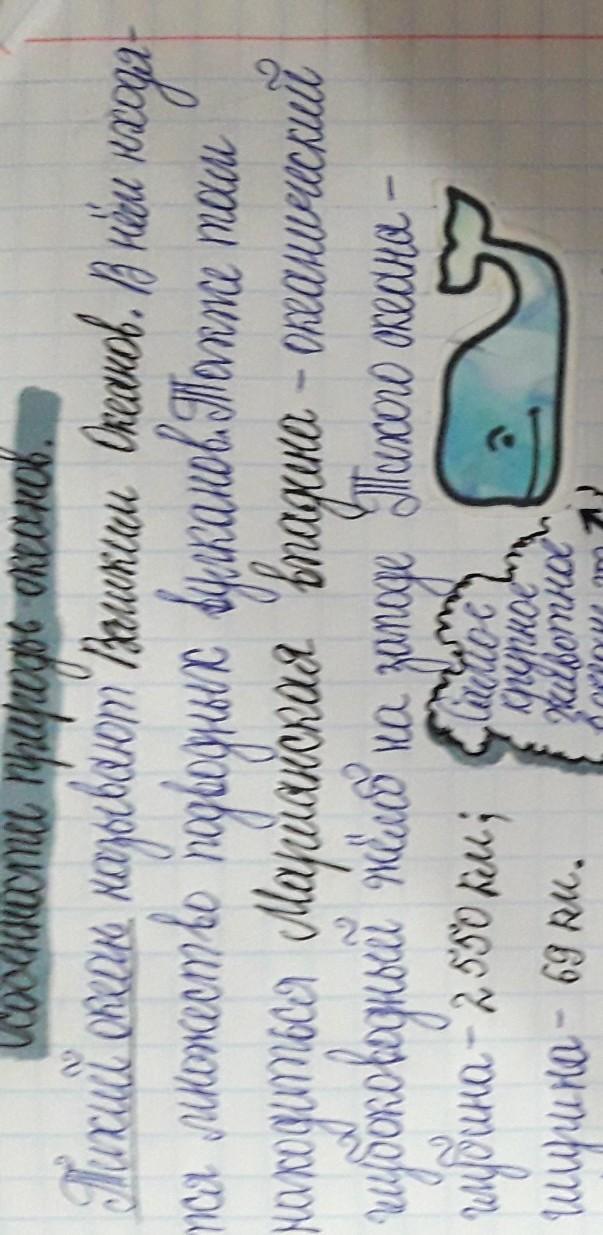 Особенности природы океанов.
Тихий океан называют Великим Океанов. В нём находя-
тся множество подводных вулканов. Также там
находиться Марианская впадина - океанический
глубоководный жёлоб на западе Тихого океана -
глубина - 2 550 км;
ширина - 69 км.
Самое
крупное
животное